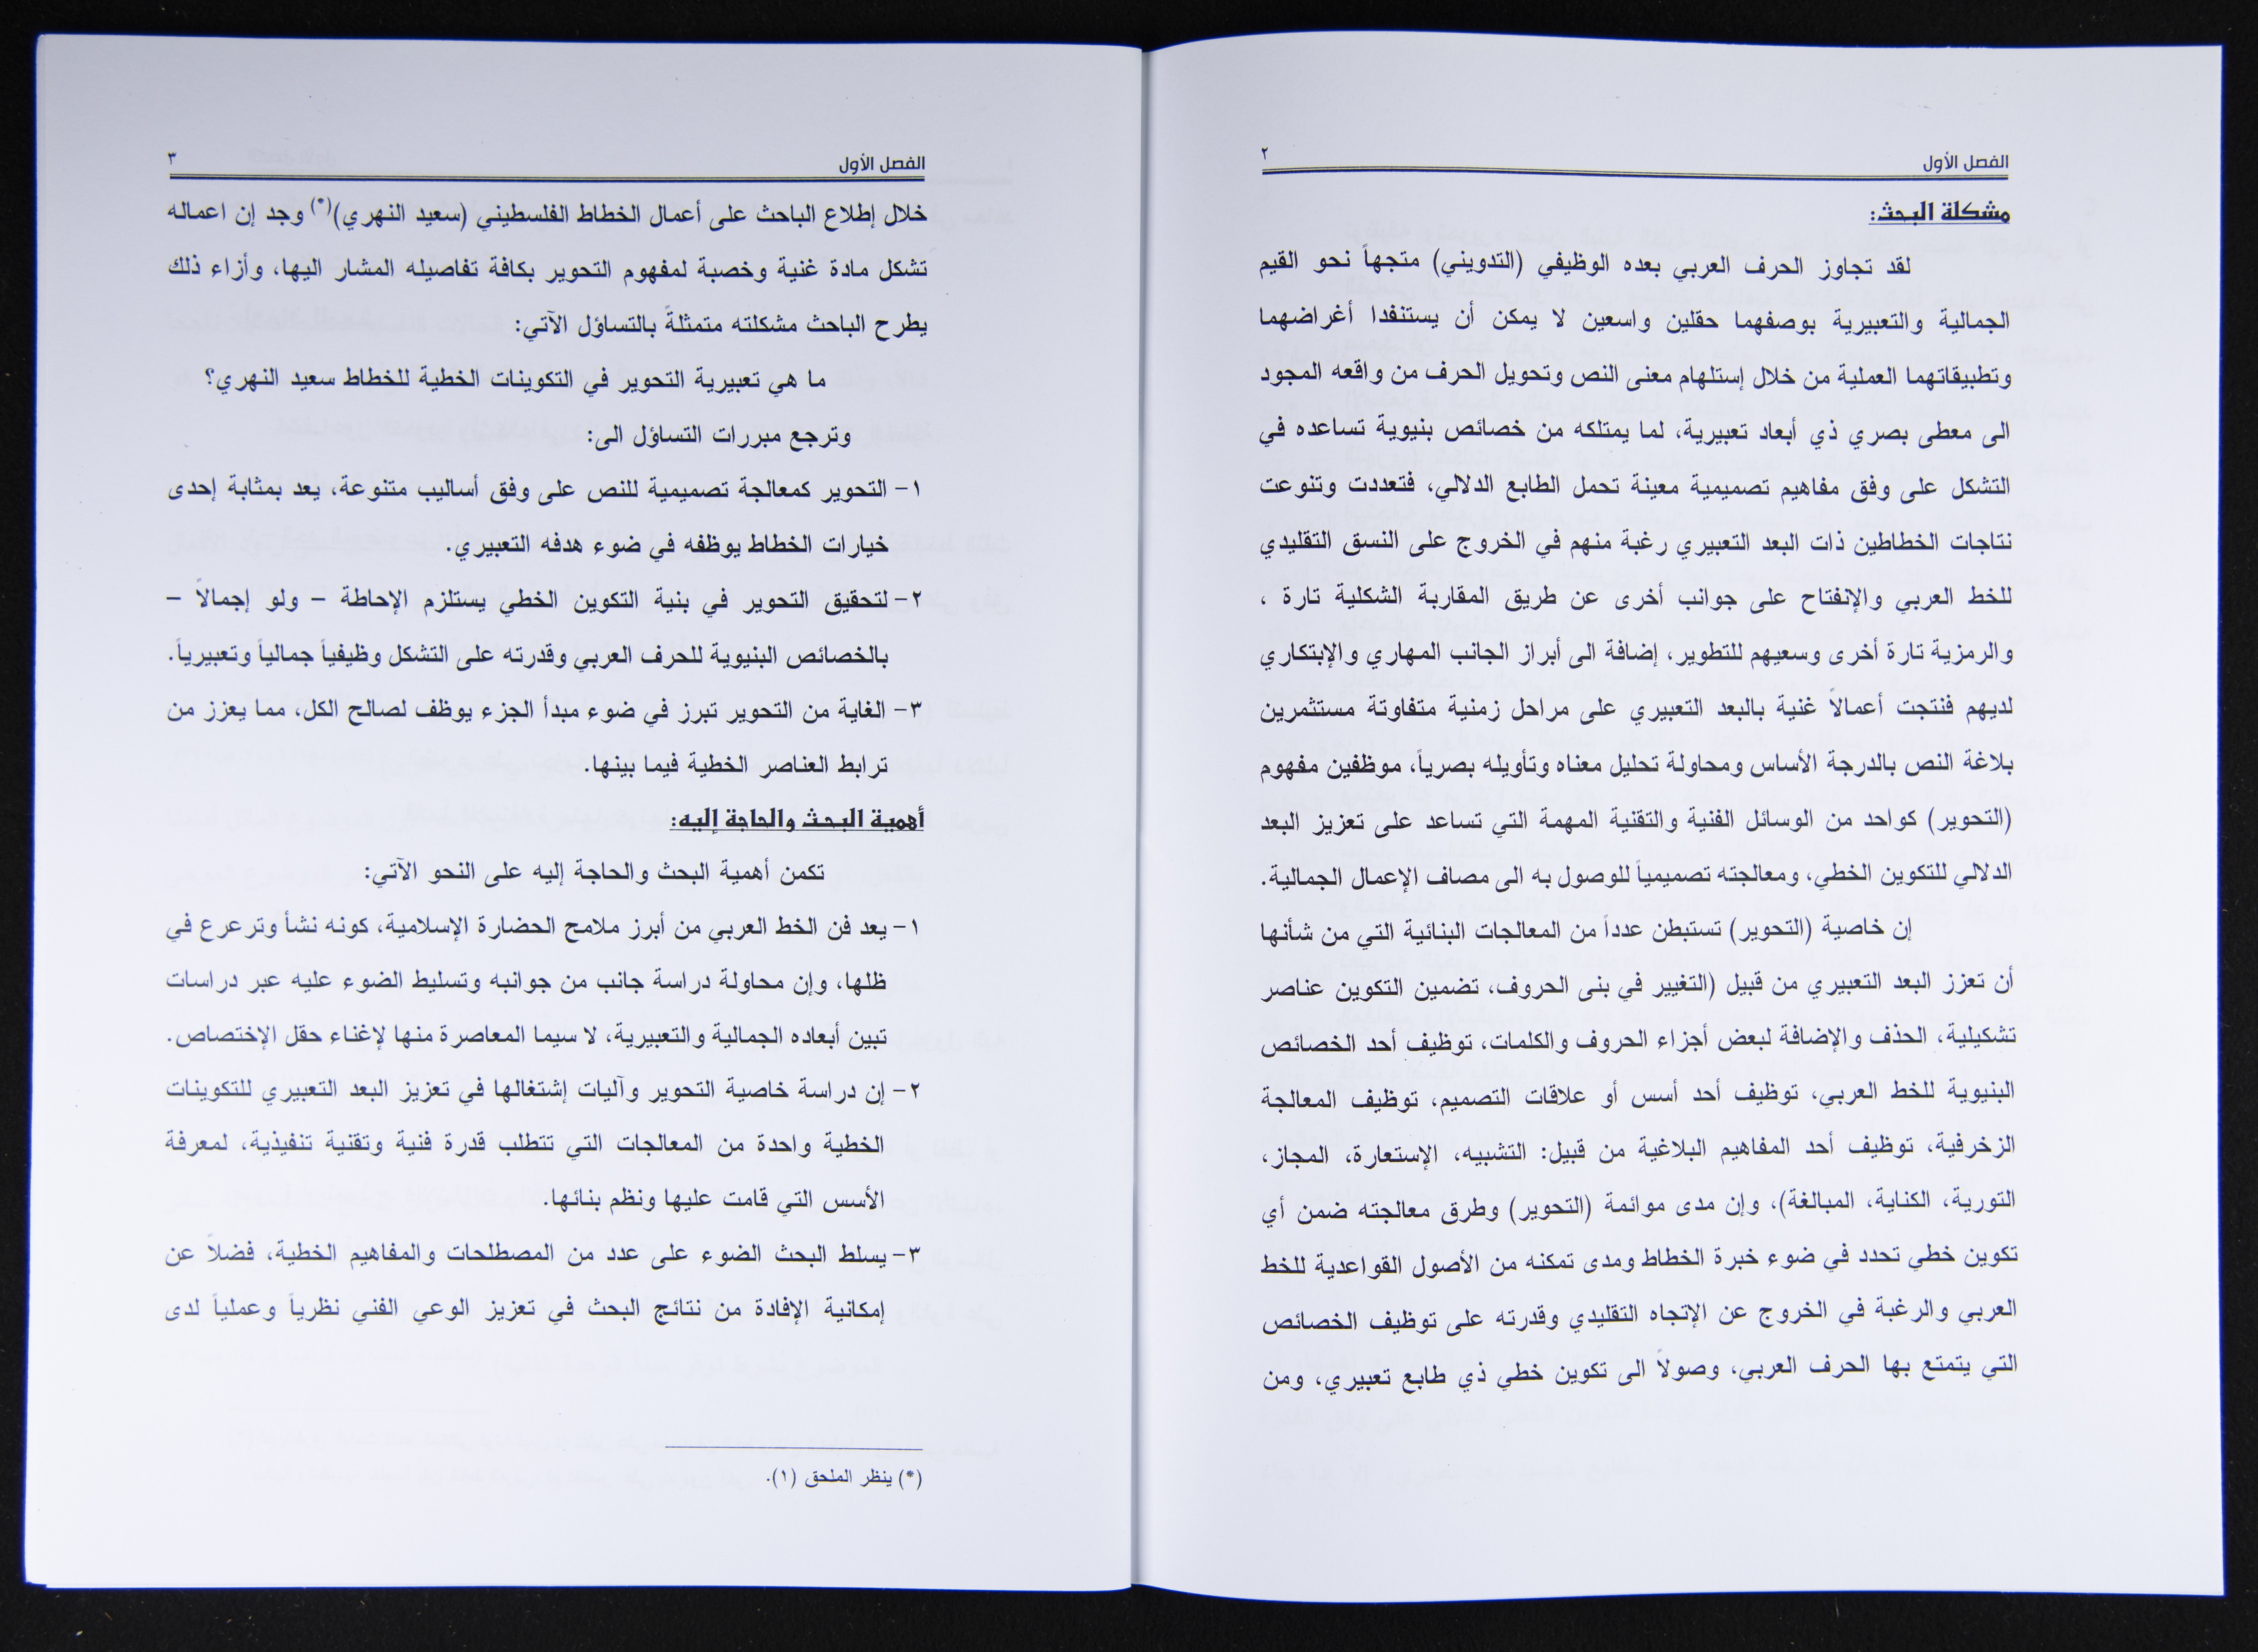 الفصل الأول
٢
مشكلة البحث:
لقد تجاوز الحرف العربي بعده الوظيفي (التدويني) متجهاً نحو القيم
الجمالية والتعبيرية بوصفهما حقلين واسعين لا يمكن أن يستنفدا أغراضهما
وتطبيقاتهما العملية من خلال إستلهام معنى النص وتحويل الحرف من واقعه المجود
الى معطى بصري ذي أبعاد تعبيرية، لما يمتلكه من خصائص بنيوية تساعده في
التشكل على وفق مفاهيم تصميمية معينة تحمل الطابع الدلالي، فتعددت وتنوعت
نتاجات الخطاطين ذات البعد التعبيري رغبة منهم في الخروج على النسق التقليدي
للخط العربي والإنفتاح على جوانب أخرى عن طريق المقاربة الشكلية تارة ،
والرمزية تارة أخرى وسعيهم للتطوير، إضافة الى أبراز الجانب المهاري والإبتكاري
لديهم فنتجت أعمالاً غنية بالبعد التعبيري على مراحل زمنية متفاوتة مستثمرين
بلاغة النص بالدرجة الأساس ومحاولة تحليل معناه وتأويله بصرياً، موظفين مفهوم
(التحوير) كواحد من الوسائل الفنية والتقنية المهمة التي تساعد على تعزيز البعد
الدلالي للتكوين الخطي، ومعالجته تصميمياً للوصول به الى مصاف الإعمال الجمالية.
إن خاصية (التحوير) تستبطن عدداً من المعالجات البنائية التي من شأنها
أن تعزز البعد التعبيري من قبيل (التغيير في بنى الحروف، تضمين التكوين عناصر
تشكيلية، الحذف والإضافة لبعض أجزاء الحروف والكلمات، توظيف أحد الخصائص
البنيوية للخط العربي، توظيف أحد أسس أو علاقات التصميم، توظيف المعالجة
الزخرفية، توظيف أحد المفاهيم البلاغية من قبيل: التشبيه، الإستعارة، المجاز،
التورية، الكناية، المبالغة)، وإن مدى موائمة (التحوير) وطرق معالجته ضمن أي
تكوين خطي تحدد في ضوء خبرة الخطاط ومدى تمكنه من الأصول القواعدية للخط
العربي والرغبة في الخروج عن الإتجاه التقليدي وقدرته على توظيف الخصائص
التي يتمتع بها الحرف العربي، وصولاً الى تكوين خطي ذي طابع تعبيري، ومن
الفصل الأول
٣
خلال إطلاع الباحث على أعمال الخطاط الفلسطيني (سعيد النهري)(*) وجد إن اعماله
تشكل مادة غنية وخصبة لمفهوم التحوير بكافة تفاصيله المشار اليها، وأزاء ذلك
يطرح الباحث مشكلته متمثلةً بالتساؤل الآتي:
ما هي تعبيرية التحوير في التكوينات الخطية للخطاط سعيد النهري؟
وترجع مبررات التساؤل الى:
١- التحوير كمعالجة تصميمية للنص على وفق أساليب متنوعة، يعد بمثابة إحدى
خيارات الخطاط يوظفه في ضوء هدفه التعبيري.
٢- لتحقيق التحوير في بنية التكوين الخطي يستلزم الإحاطة – ولو إجمالاً –
بالخصائص البنيوية للحرف العربي وقدرته على التشكل وظيفياً جمالياً وتعبيرياً.
٣- الغاية من التحوير تبرز في ضوء مبدأ الجزء يوظف لصالح الكل، مما يعزز من
ترابط العناصر الخطية فيما بينها.
أهمية البحث والحاجة إليه:
تكمن أهمية البحث والحاجة إليه على النحو الآتي:
١- يعد فن الخط العربي من أبرز ملامح الحضارة الإسلامية، كونه نشأ وترعرع في
ظلها، وإن محاولة دراسة جانب من جوانبه وتسليط الضوء عليه عبر دراسات
تبين أبعاده الجمالية والتعبيرية، لا سيما المعاصرة منها لإغناء حقل الإختصاص.
٢- إن دراسة خاصية التحوير وآليات إشتغالها في تعزيز البعد التعبيري للتكوينات
الخطية واحدة من المعالجات التي تتطلب قدرة فنية وتقنية تنفيذية، لمعرفة
الأسس التي قامت عليها ونظم بنائها.
٣- يسلط البحث الضوء على عدد من المصطلحات والمفاهيم الخطية، فضلاً عن
إمكانية الإفادة من نتائج البحث في تعزيز الوعي الفني نظرياً وعملياً لدى
(*) ينظر الملحق (١).